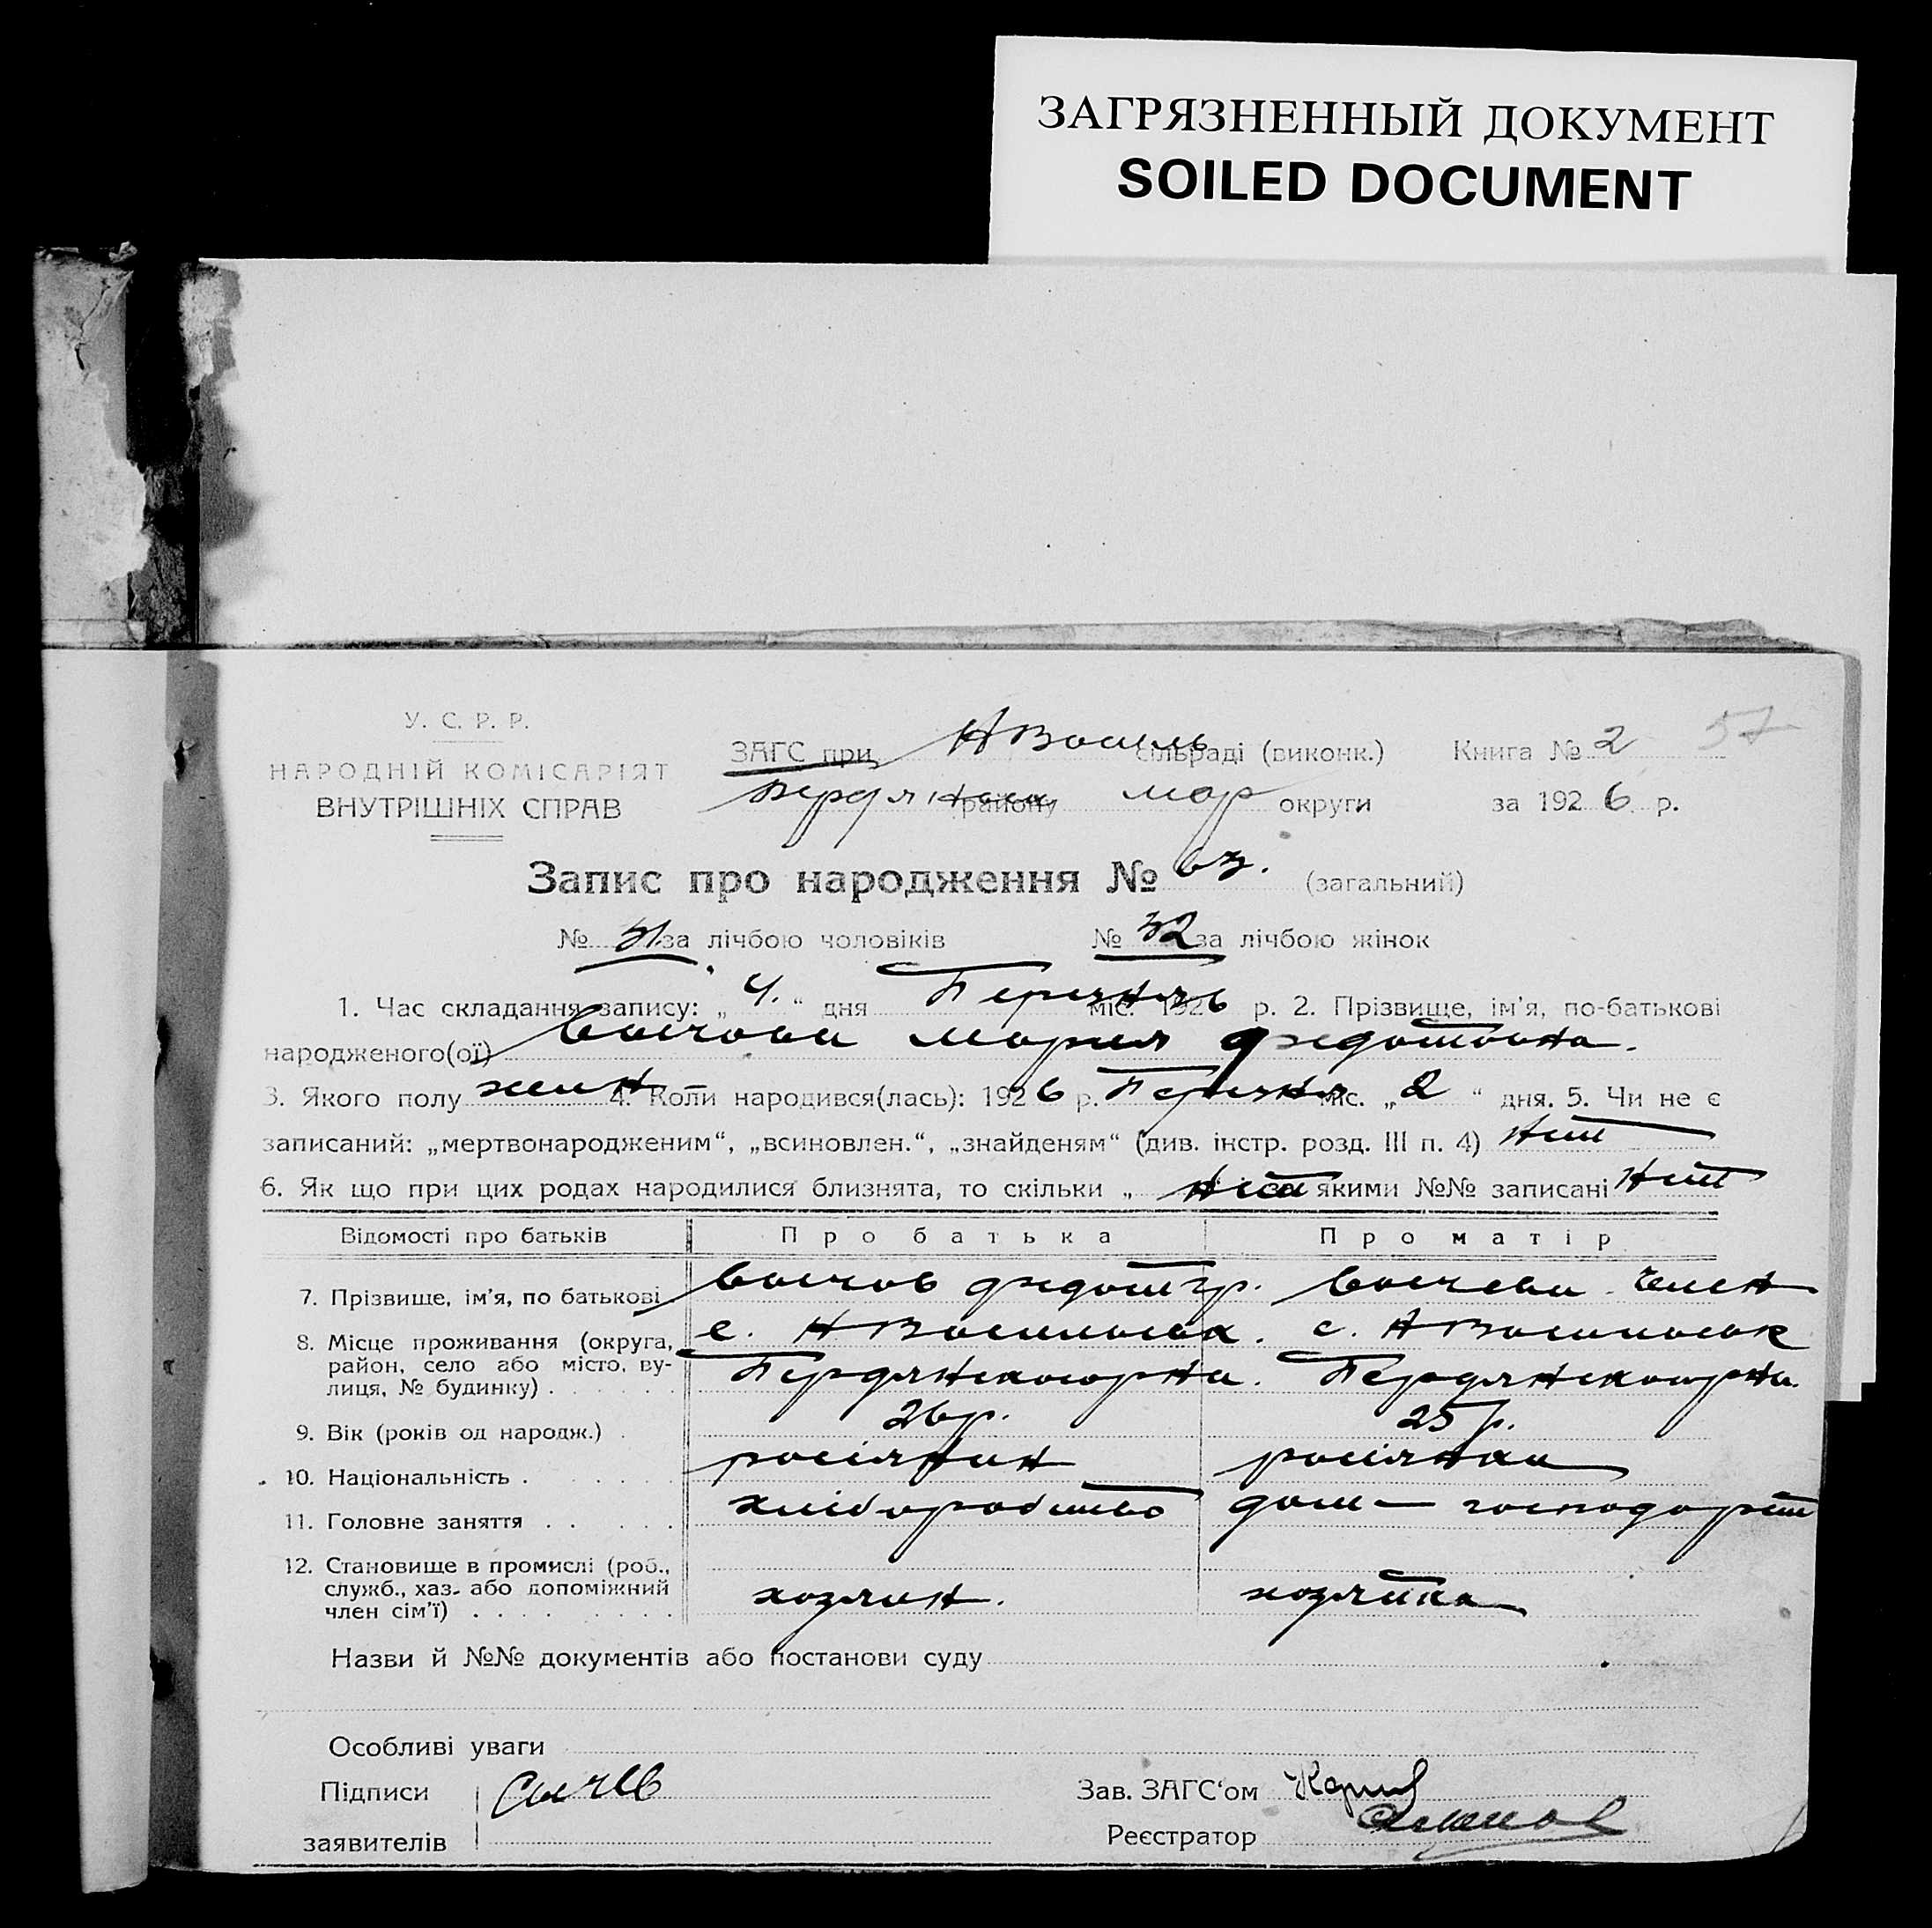 ЗАГРЯЗНЕННЫЙ ДОКУМЕНТ
SOILED DOCUMENT
У. С. Р. Р.
НАРОДНІЙ КОМІСАРІЯТ
ВНУТРІШНІХ СПРАВ
ЗАГС при НВасиль сільраді (виконк.) Книга № 2 57
Бердянськ району мар округи за 1926 р.
Запис про народження № 63. (загальний)
№ 31 за лічбою чоловіків № 32 за лічбою жінок
1. Час складання запису: „ 4. “ дня Березня міс. 1926 р. 2. Прізвище, ім’я, по-батькові
народженого(ої) Мария Федотовна.
3. Якого полу жен 4. Коли народився(лась): 1926 р. Березня міс. „ 2 “ дня. 5. Чи не є
записаний: „мертвонародженим“, „всиновлен.“, „знайденям“ (див. інстр. розд. III п. 4) ніт
6. Як що при цих родах народилися близнята, то скільки „ ніт за якими №№ записані ніт
Відомості про батьків Про батька Про матір
7. Прізвище, ім’я, по батькові Федот гр.
8. Місце проживання (округа, район, село або місто, вулиця, № будинку) с. НВасильовка. с. НВасильовк
Бердянського рна. Бердянського рна.
9. Вік (років од народж.) 26 р. 25 р.
10. Національність росіянин росіянка
11. Головне заняття хліборобство дом— господарст
12. Становище в промислі (роб., служб., хаз. або допоміжний член сім’ї) хозяин. хозяйка
Назви й №№ документів або постанови суду
Особливі уваги
Підписи
заявителів
Зав. ЗАГС‘ом
Реєстратор